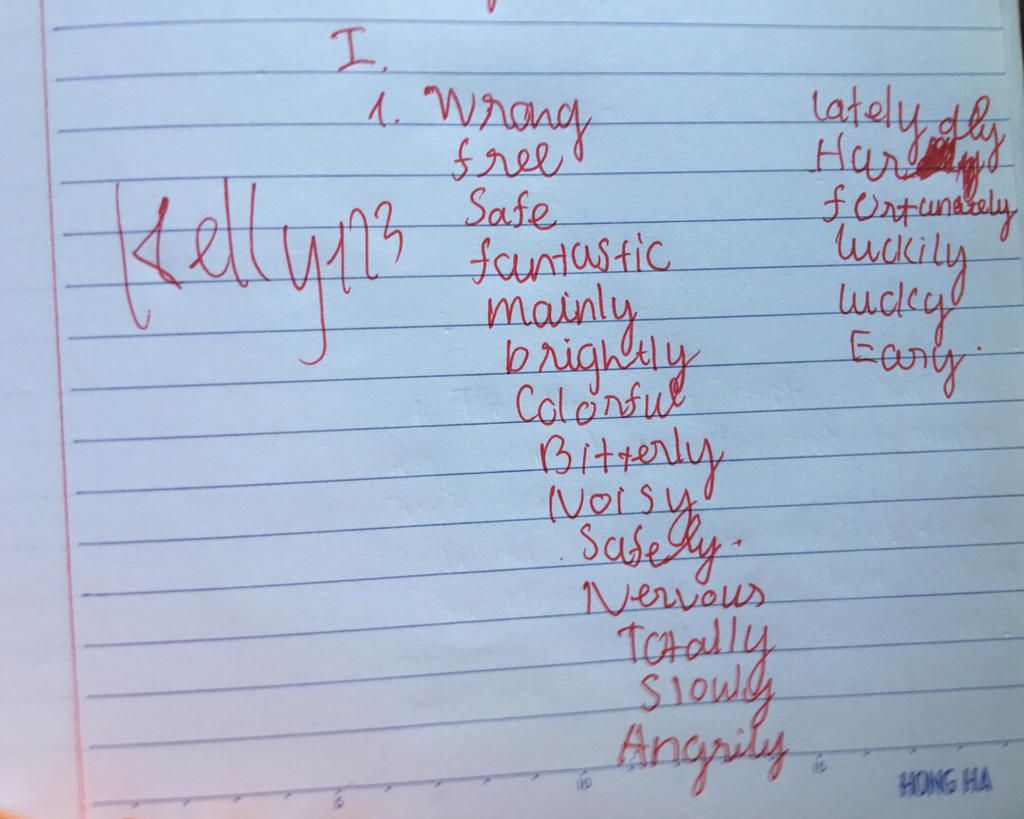 I.
1. Wrong
free
Safe
fantastic
mainly
brightly
Colorful
Bitterly
Noisy
Safely.
Nervous
Totally
Slowly
Angrily
lately
Har gly
fortunately
luckily
lucky
Easy.
Kelly123
10
15
HONG HA